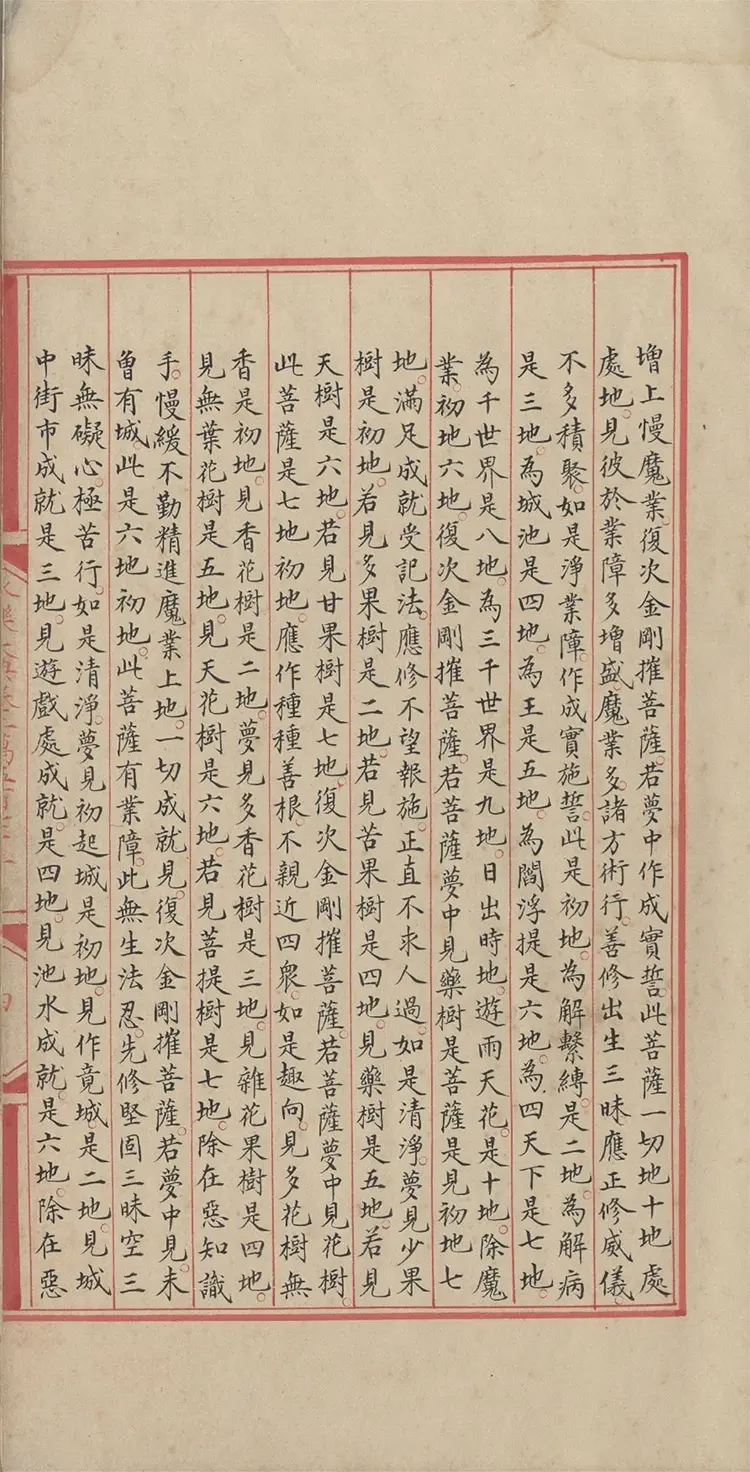 增上慢魔業。復次金剛摧菩薩。若夢中作成實誓。此菩薩一切地十地處
處地。見彼於業障多增盛。魔業多。諸方術行。善修出生三昧。應正修威儀。
不多積聚。如是淨業障。作成實施誓。此是初地。為解繫縛。是二地。為解病
是三地。為城池是四地。為王是五地。為閻浮提是六地。為四天下是七地。
為千世界是八地。為三千世界是九地。日出時地。遊雨天花。是十地。除魔
業。初地六地。復次金剛摧菩薩。若菩薩夢中見藥樹是菩薩是見初地七
地。滿足成就受記法。應修不望報施。正直不求人過。如是清淨。夢見少果
樹是初地。若見多果樹是二地。若見苦果樹是四地。見藥樹是五地。若見
天樹是六地。若見甘果樹是七地。復次金剛摧菩薩。若菩薩夢中見花樹。
此菩薩是七地初地。應作種種善根。不親近四衆。如是趣向。見多花樹無
香是初地。見香花樹是二地。夢見多香花樹是三地。見雜花果樹是四地。
見無葉花樹是五地。見天花樹是六地。若見菩提樹是七地。除在惡知識
手。慢緩不勤精進魔業上地。一切成就見。復次金剛摧菩薩。若夢中見。未
曾有城此是六地初地。此菩薩有業障。此無生法忍。先修堅固三昧空三
昧無礙心。極苦行。如是清淨。夢見初起城是初地。見作竟城。是二地。見城
中街市成就是三地。見遊戲處成就。是四地。見池水成就。是六地。除在惡